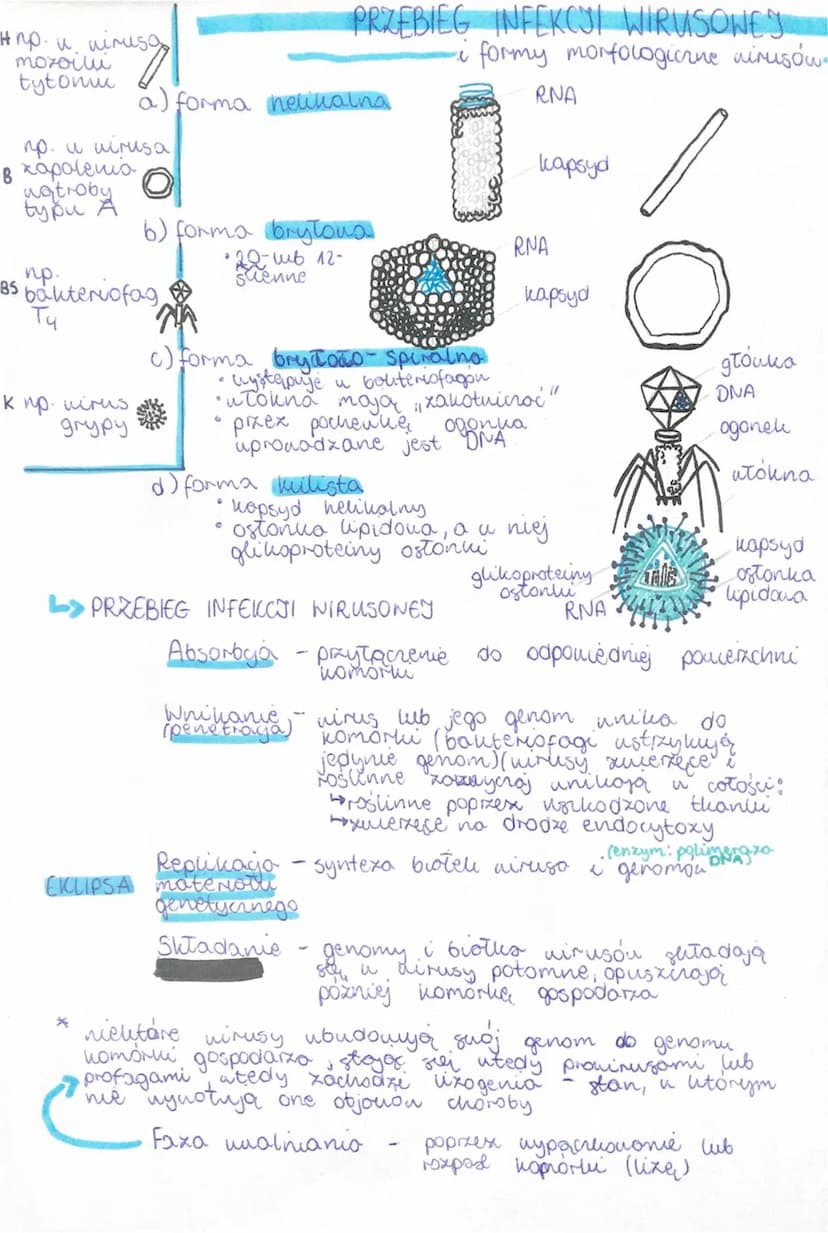 PRZEBIEG INFEKCJI WIRUSOWEJ
i formy morfologiczne wirusów
H np. u wirusa
mozaiki
tytoniu
a) forma helikalna
RNA
kapsyd
B np. u wirusa
zapalenia
wątroby
typu A
b) forma bryłowa
• 20- lub 12-
ścienne
RNA
kapsyd
BS np.
bakteriofag
T4
c) forma bryłowo-spiralna
• występuje u bakteriofagów
• włókna mają „zakotwiczać”
• przez pochewkę ogonka
wprowadzane jest DNA
główka
DNA
ogonek
włókna
K np. wirus
grypy
d) forma kulista
• kapsyd helikalny
• osłonka lipidowa, a w niej
glikoproteiny osłonki
glikoproteiny
osłonki
RNA
kapsyd
osłonka
lipidowa
↳ PRZEBIEG INFEKCJI WIRUSOWEJ
Absorbcja – przyłączenie do odpowiedniej powierzchni
komórki
Wnikanie – wirus lub jego genom wnika do
(penetracja) komórki (bakteriofagi wstrzykują
jedynie genom)(wirusy zwierzęce i
roślinne zazwyczaj wnikają w całości:
↳ roślinne poprzez uszkodzone tkanki
↳ zwierzęce na drodze endocytozy
(enzym: polimeraza
DNA)
Replikacja – synteza białek wirusa i genomów
EKLIPSA materiału
genetycznego
Składanie – genomy i białka wirusów składają
się w wirusy potomne, opuszczają
później komórkę gospodarza
* niektóre wirusy wbudowują swój genom do genomu
komórki gospodarza, stając się wtedy prowirusami lub
profagami wtedy zachodzi lizogenia – stan, w którym
nie wywołują one objawów choroby
Faza uwalniania – poprzez wypączkowanie lub
rozpad komórki (lizę)